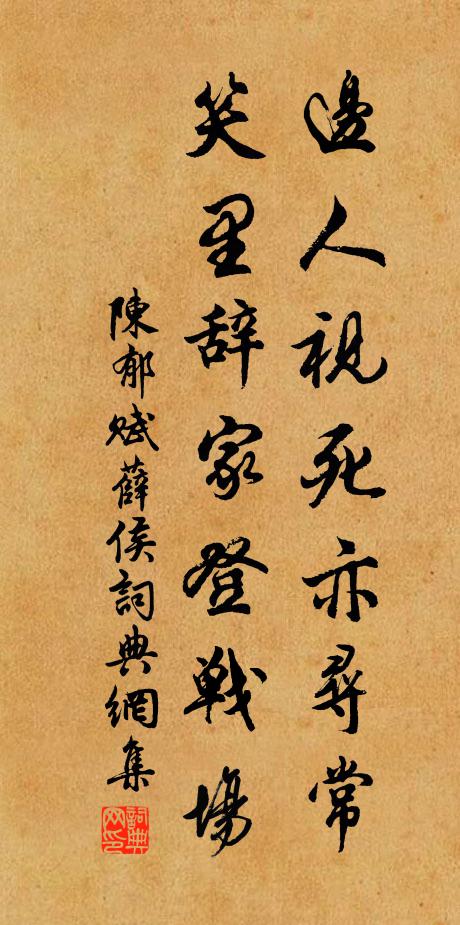 邊人視死亦尋常
笑里辞家登戰場
陳郁賦薛侯詞典網集
詞典网印